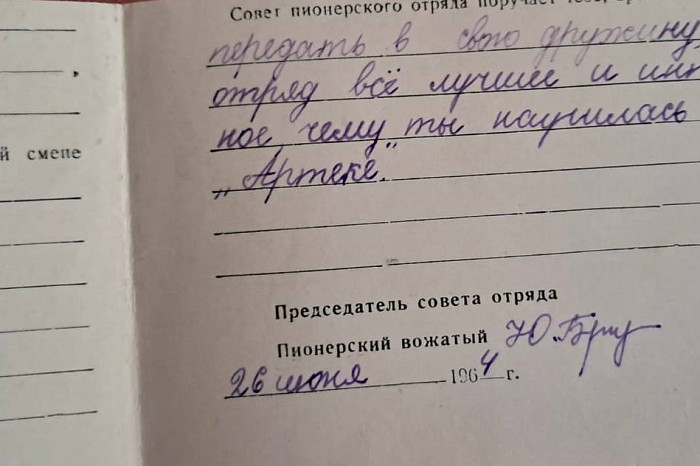 Совет пионерского отряда поручает тебе,
передать в свою дружину
отряд всё лучшее и инт
ное, чему ты научилась
„Артеке".
й смене
Председатель совета отряда
Пионерский вожатый Ю.
26 июня 1964 г.